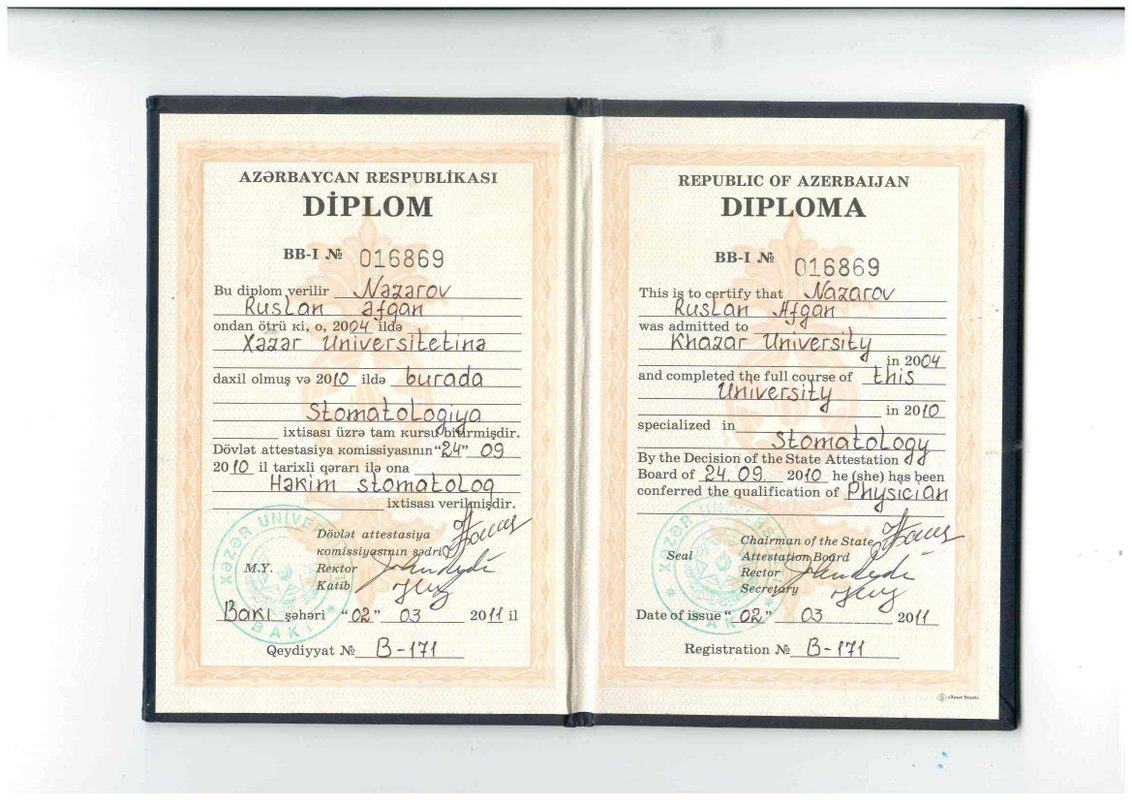 AZƏRBAYCAN RESPUBLİKASI
DİPLOM
BB-I № 016869
Bu diplom verilir Nəzərov
Ruslan Əfqan
ondan ötrü ki, o, 2004 ildə
Xəzər Universitetinə
daxil olmuş və 2010 ildə burada
Stomatologiya
ixtisası üzrə tam kursu bitirmişdir.
Dövlət attestasiya komissiyasının "24" 09
2010 il tarixli qərarı ilə ona
Həkim stomatoloq
ixtisası verilmişdir.
Dövlət attestasiya
komissiyasının sədri
M.Y. Rektor
Katib
XƏZƏR UNIVE
BAKI
Bakı şəhəri "02" 03 2011 il
Qeydiyyat № B-171
REPUBLIC OF AZERBAIJAN
DIPLOMA
BB-I № 016869
This is to certify that Nazarov
Ruslan Afgan
was admitted to
Khazar University
in 2004
and completed the full course of this
University
in 2010
specialized in
Stomatology
By the Decision of the State Attestation
Board of 24.09. 2010 he (she) has been
conferred the qualification of Physician
Chairman of the State
Seal Attestation Board
Rector
Secretary
XƏZƏR UNIVE
BAKI
Date of issue "02" 03 2011
Registration № B-171